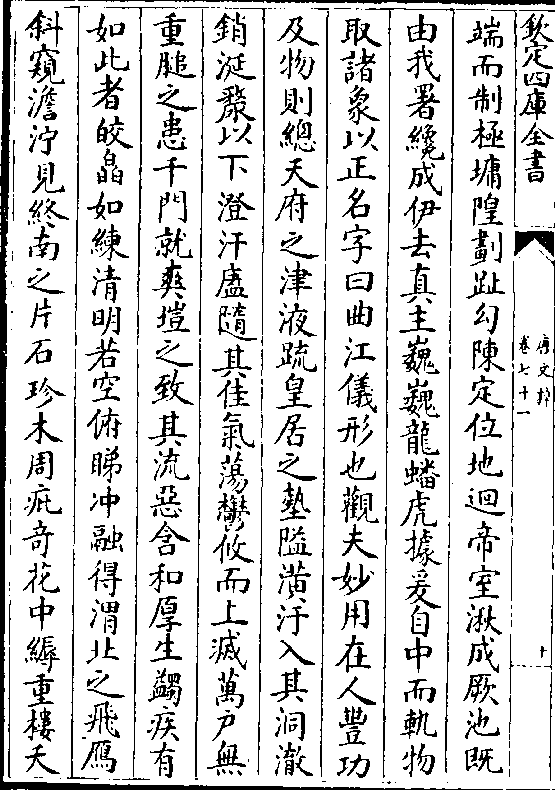 欽定四庫全書
唐文粹
卷七十一
十
端而制極墉隍劃趾勾陳定位地迴帝室湫成厥池既
由我署纔成伊去真主巍巍龍蟠虎據爰自中而軌物
取諸象以正名字曰曲江儀形也觀夫妙用在人豐功
及物則總天府之津液疏皇居之墊隘潢汙入其洞澈
銷涎漦以下澄汗盧隨其佳氣蕩鬱攸而上滅萬户無
重膇之患千門就爽塏之致其流惡含和厚生蠲疾有
如此者皎皛如練清明若空俯睇冲融得渭北之飛鴈
斜窺澹泞見終南之片石珍木周庇竒花中縟重樓夭